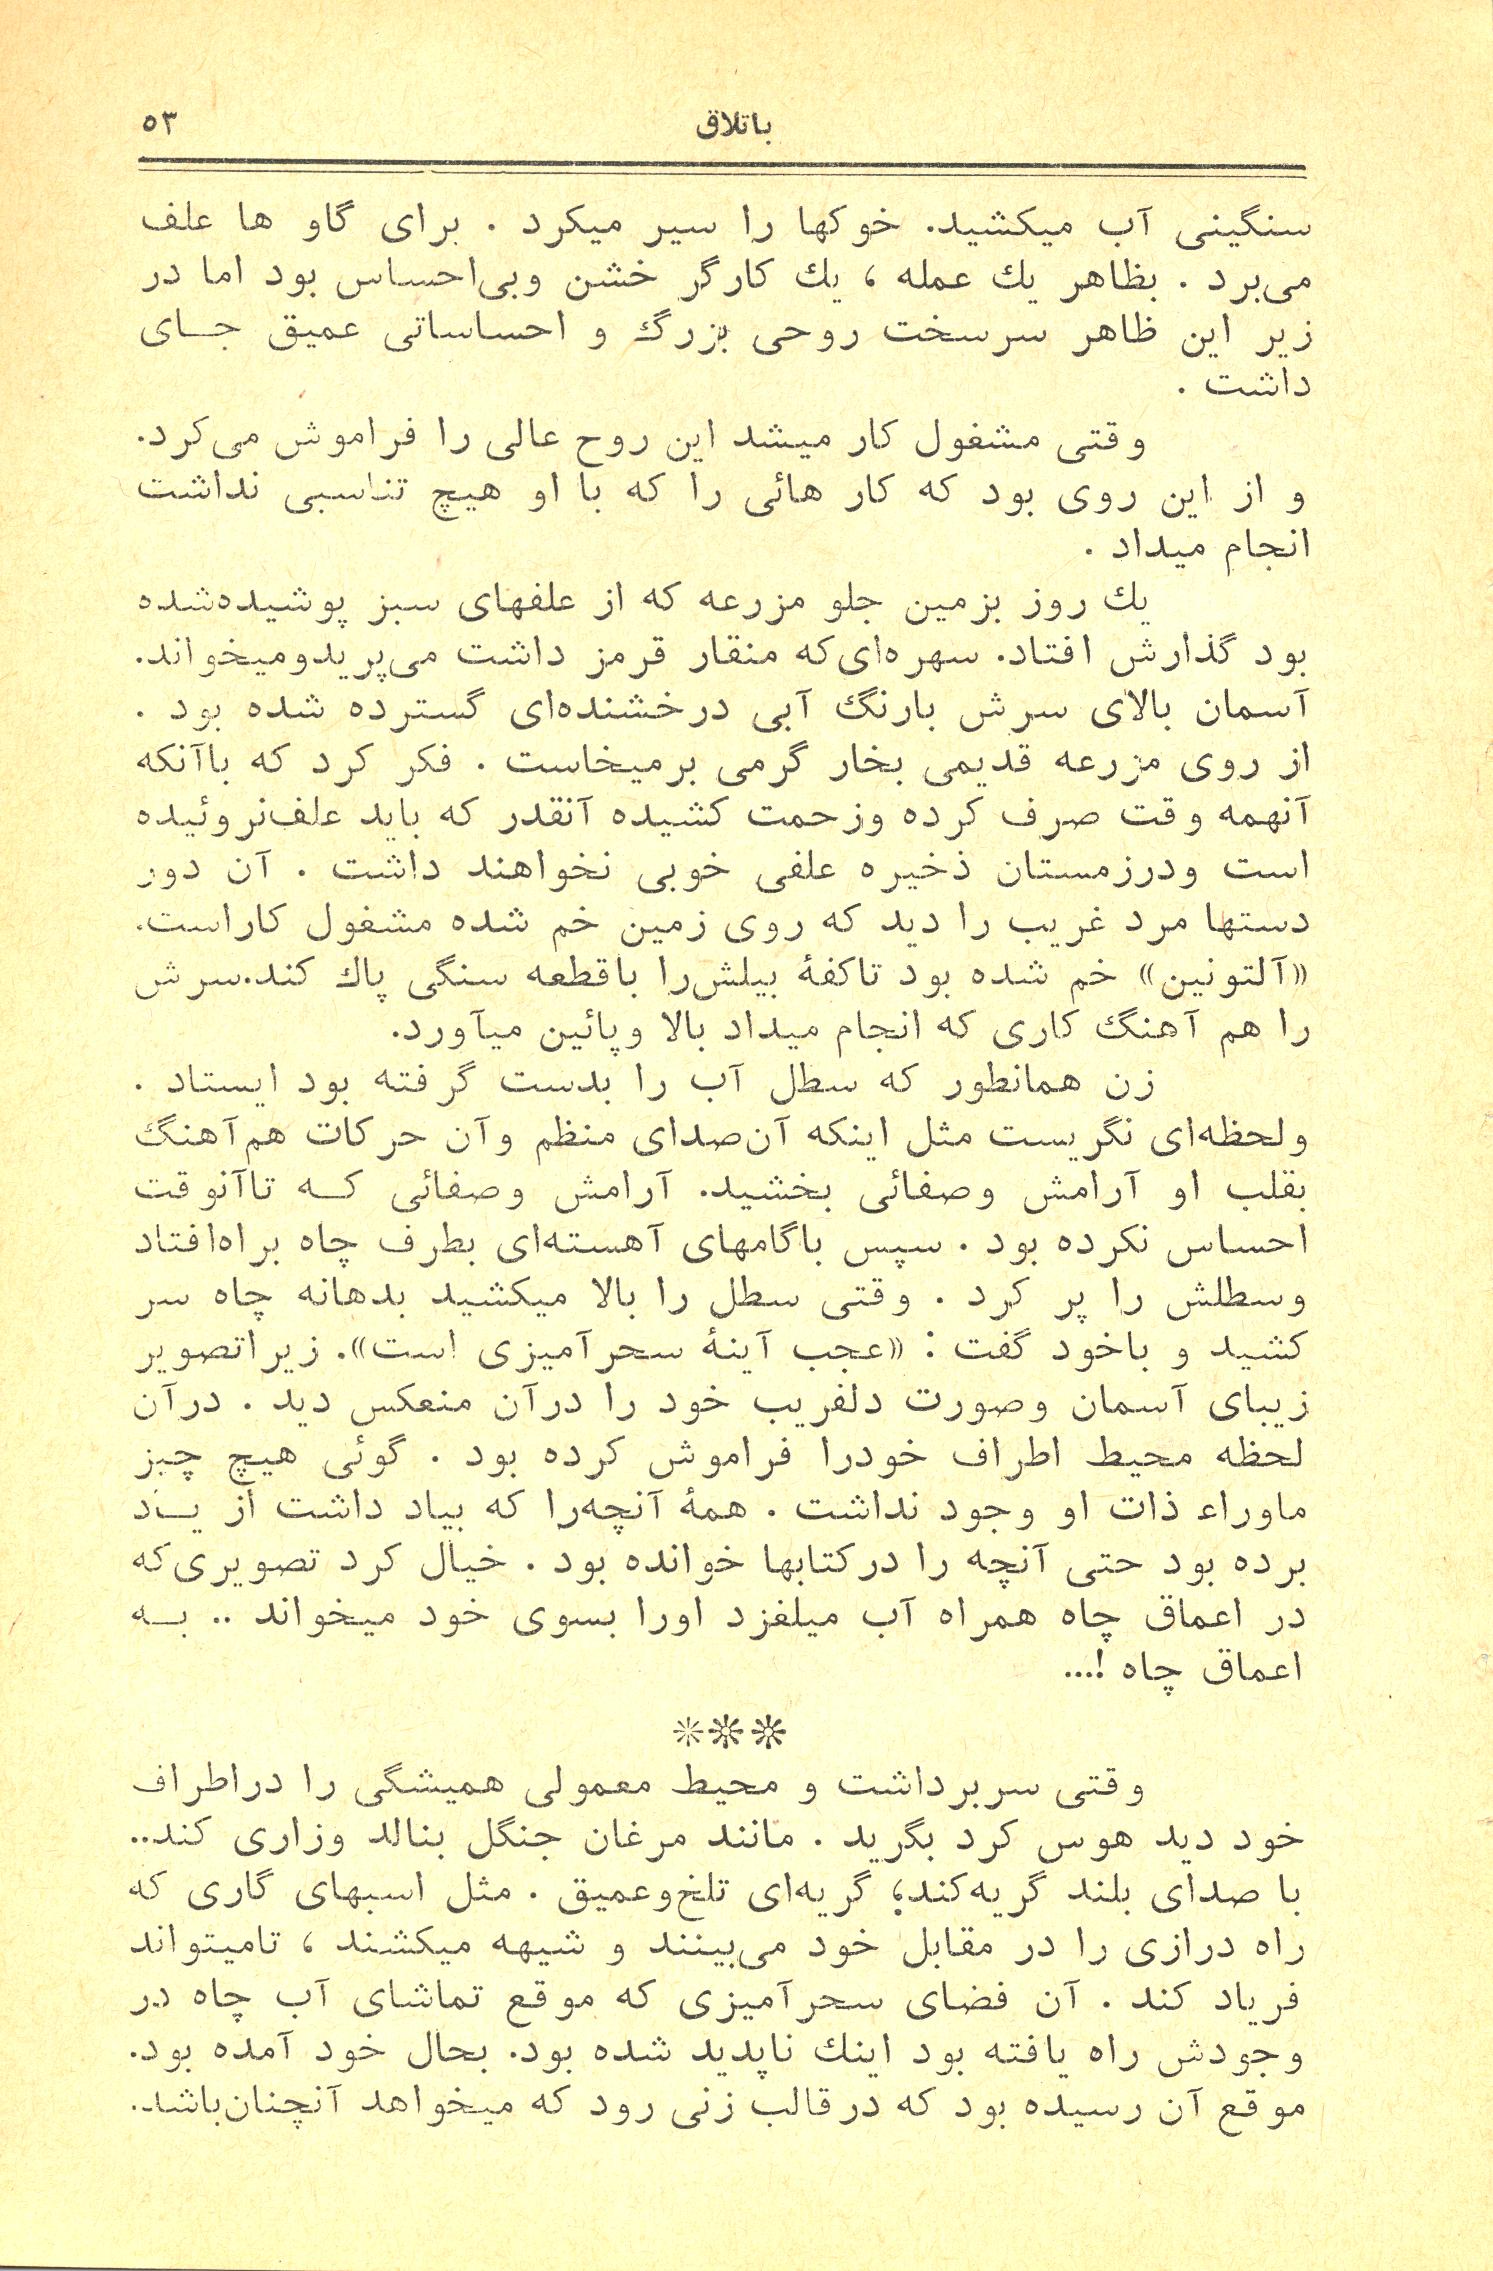 باتلاق ۵۳
سنگینی آب میکشید. خوکها را سیر میکرد . برای گاو ها علف
می‌برد . بظاهر یك عمله ، یك کارگر خشن وبی‌احساس بود اما در
زیر این ظاهر سرسخت روحی بزرگ و احساساتی عمیق جـای
داشت .
وقتی مشغول کار میشد این روح عالی را فراموش می‌کرد.
و از این روی بود که کار هائی را که با او هیچ تناسبی نداشت
انجام میداد .
یك روز بزمین جلو مزرعه که از علفهای سبز پوشیده‌شده
بود گذارش افتاد. سهره‌ای‌که منقار قرمز داشت می‌پریدومیخواند.
آسمان بالای سرش بارنگ آبی درخشنده‌ای گسترده شده بود .
از روی مزرعه قدیمی بخار گرمی برمیخاست . فکر کرد که باآنکه
آنهمه وقت صرف کرده وزحمت کشیده آنقدر که باید علف‌نروئیده
است ودرزمستان ذخیره علفی خوبی نخواهند داشت . آن دور
دستها مرد غریب را دید که روی زمین خم شده مشغول کاراست.
«آلتونین» خم شده بود تاکفهٔ بیلش‌را باقطعه سنگی پاك کند.سرش
را هم آهنگ کاری که انجام میداد بالا وپائین میآورد.
زن همانطور که سطل آب را بدست گرفته بود ایستاد .
ولحظه‌ای نگریست مثل اینکه آن‌صدای منظم وآن حرکات هم‌آهنگ
بقلب او آرامش وصفائی بخشید. آرامش وصفائی کـه تاآنوقت
احساس نکرده بود . سپس باگامهای آهسته‌ای بطرف چاه براه‌افتاد
وسطلش را پر کرد . وقتی سطل را بالا میکشید بدهانه چاه سر
کشید و باخود گفت : «عجب آینهٔ سحرآمیزی است». زیراتصویر
زیبای آسمان وصورت دلفریب خود را درآن منعکس دید . درآن
لحظه محیط اطراف خودرا فراموش کرده بود . گوئی هیچ چیز
ماوراء ذات او وجود نداشت . همهٔ آنچه‌را که بیاد داشت از یـاد
برده بود حتی آنچه را درکتابها خوانده بود . خیال کرد تصویری‌که
در اعماق چاه همراه آب میلغزد اورا بسوی خود میخواند .. بـه
اعماق چاه !...
***
وقتی سربرداشت و محیط معمولی همیشگی را دراطراف
خود دید هوس کرد بگرید . مانند مرغان جنگل بنالد وزاری کند..
با صدای بلند گریه‌کند؛ گریه‌ای تلخ‌وعمیق . مثل اسبهای گاری که
راه درازی را در مقابل خود می‌بینند و شیهه میکشند ، تامیتواند
فریاد کند . آن فضای سحرآمیزی که موقع تماشای آب چاه در
وجودش راه یافته بود اینك ناپدید شده بود. بحال خود آمده بود.
موقع آن رسیده بود که درقالب زنی رود که میخواهد آنچنان‌باشد.